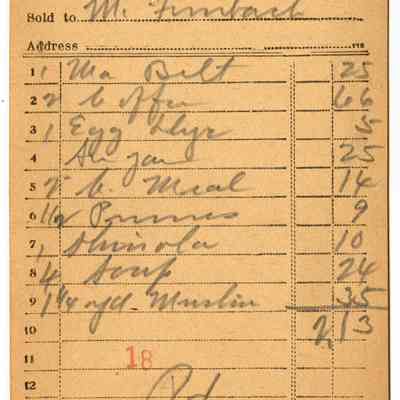 Sold to M.
Address
1 1 Belt 25
2 2 Coffee 66
3 1 Egg 5
4 25
5 2 C. Meal 14
6 1/2 Prunes 9
7 1 Shinola 10
8 4 Soap 24
9 1 1/4 yd Muslin 35
10 2,13
11 18
12 Pd